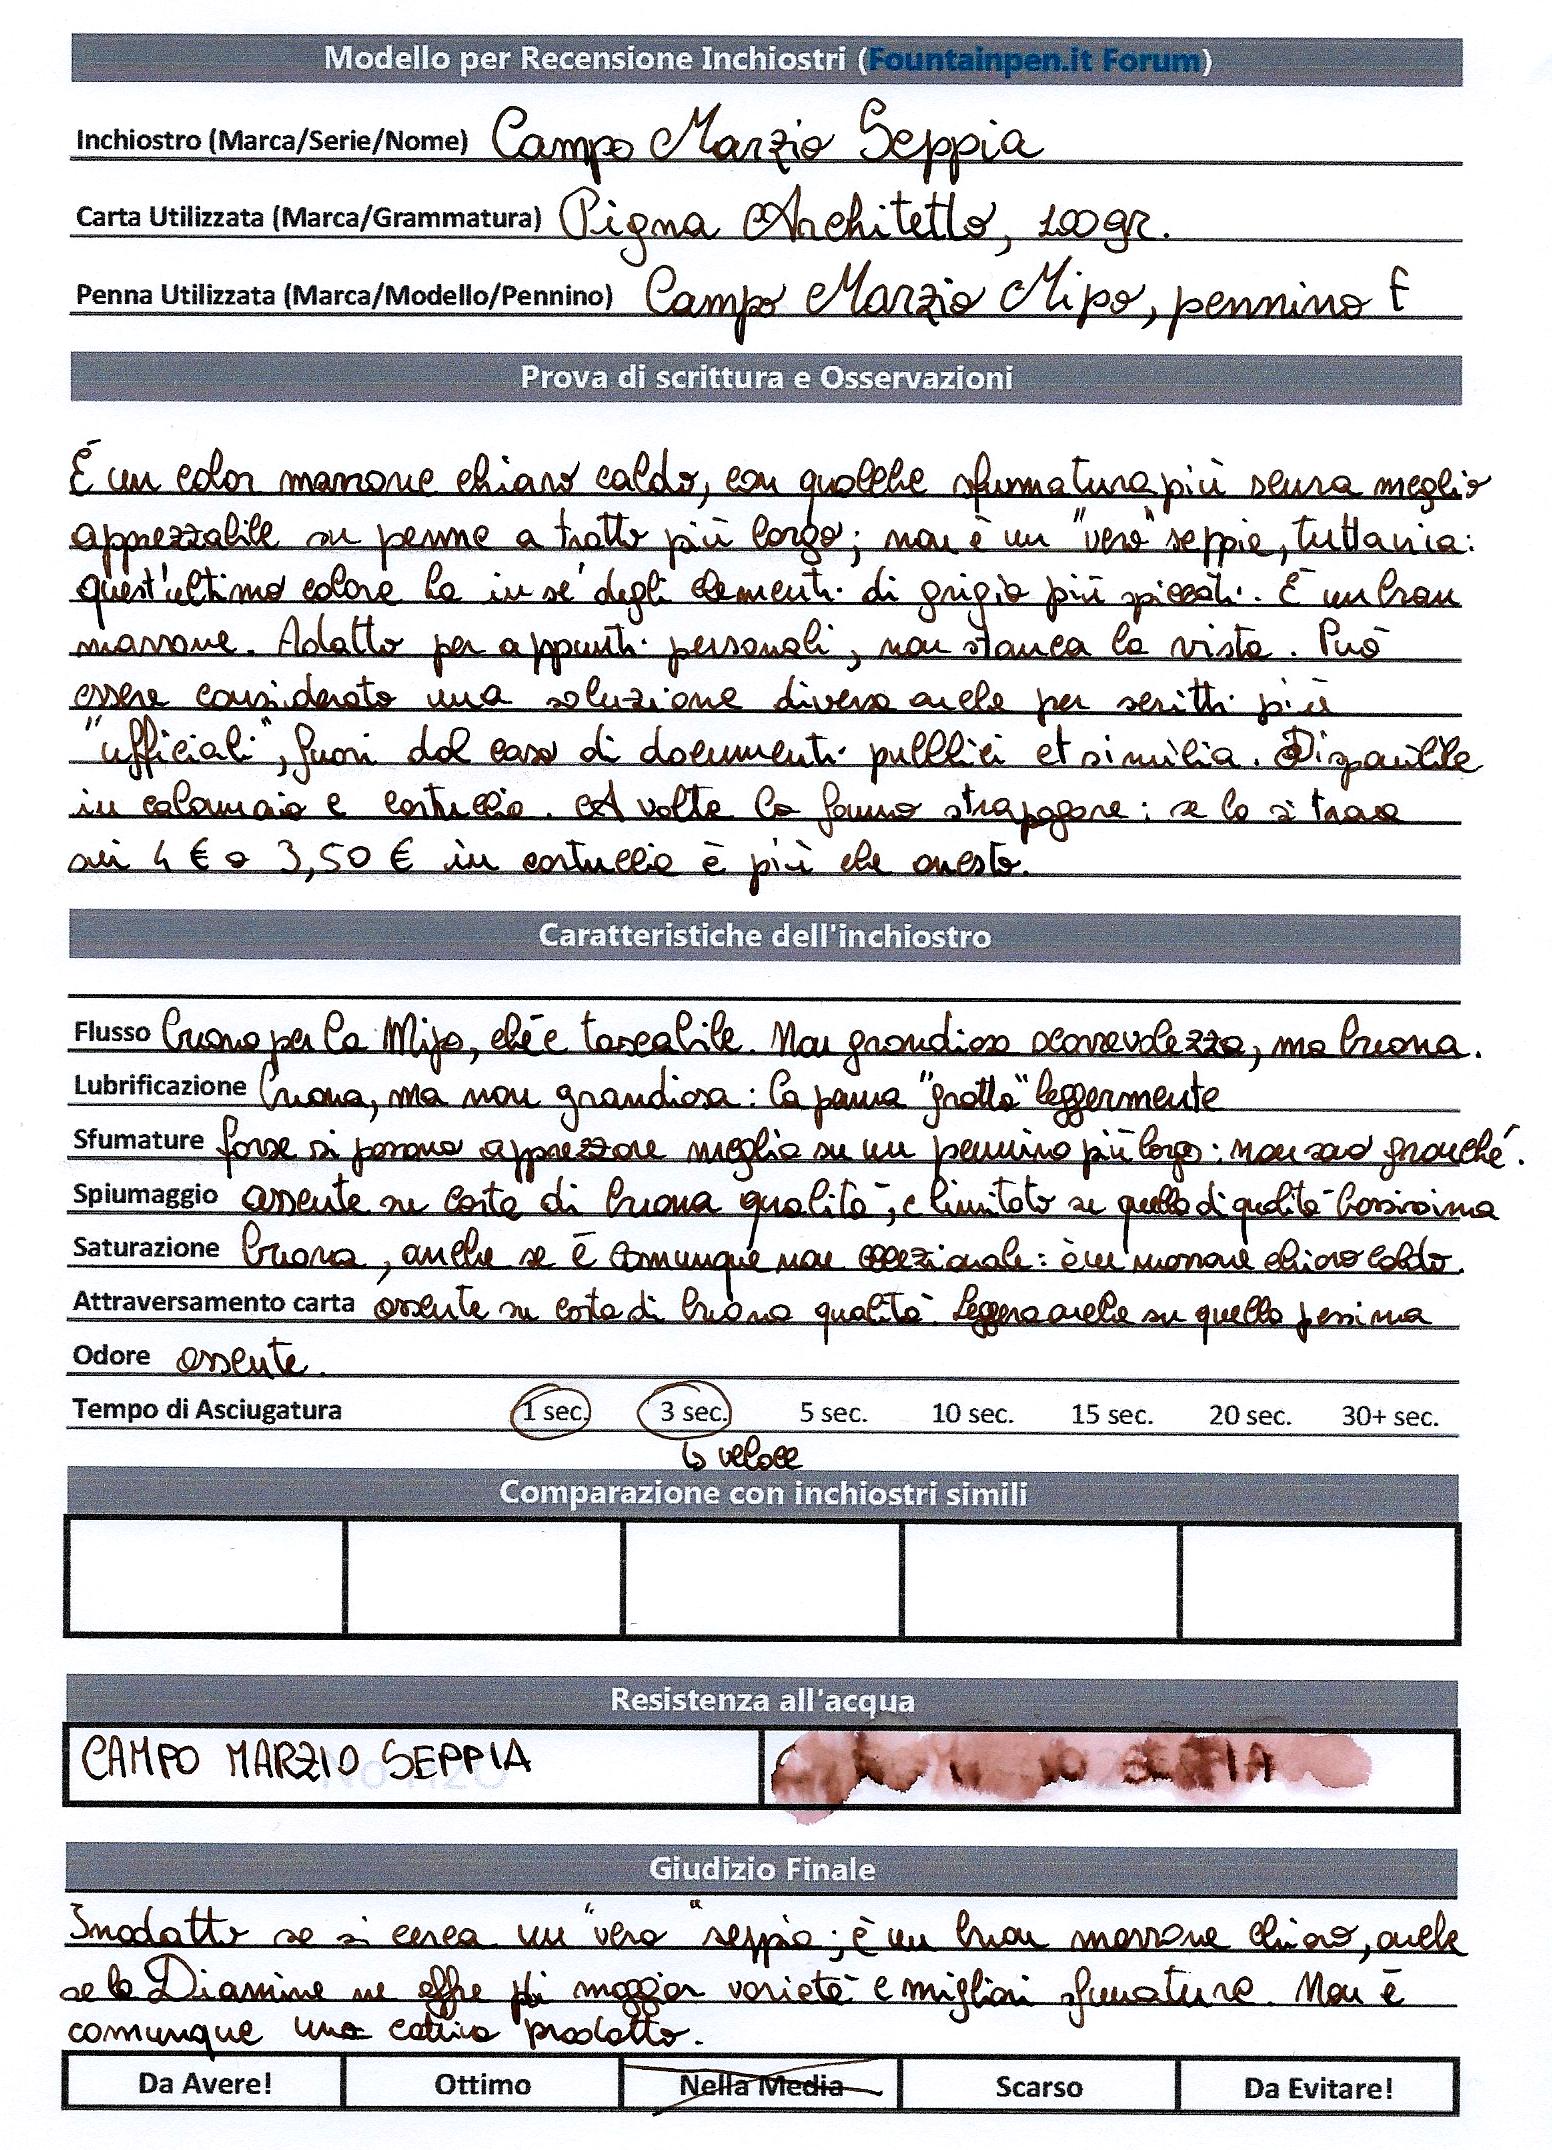 Modello per Recensione Inchiostri (Fountainpen.it Forum)
Inchiostro (Marca/Serie/Nome) Campo Marzio Seppia
Carta Utilizzata (Marca/Grammatura) Pigna Architetto, 100gr.
Penna Utilizzata (Marca/Modello/Pennino) Campo Marzio Mipo, pennino F
Prova di scrittura e Osservazioni
È un color marrone chiaro caldo, con qualche sfumatura più scura meglio
apprezzabile su penne a tratto più largo; non è un "vero" seppia, tuttavia:
quest'ultimo colore ha in sé degli elementi di grigio più spiccati. È un buon
marrone. Adatto per appunti personali, non stanca la vista. Può
essere considerato una soluzione diversa anche per scritti più
"ufficiali", fuori dal caso di documenti pubblici et similia. Disponibile
in calamaio e cartuccia. A volte lo fanno strapagare: se lo si trova
sui 4 € o 3,50 € in cartuccia è più che onesto.
Caratteristiche dell'inchiostro
Flusso buono per la Mipo, ch'è tascabile. Non grandiosa scorrevolezza, ma buona.
Lubrificazione buona, ma non grandiosa: la penna "gratta" leggermente
Sfumature forse si possono apprezzare meglio su un pennino più largo: non sono granché.
Spiumaggio assente su carta di buona qualità, e limitato su quella di qualità bassissima
Saturazione buona, anche se è comunque non eccezionale: è un marrone chiaro caldo.
Attraversamento carta assente su carta di buona qualità. Leggero anche su quella pessima
Odore assente.
Tempo di Asciugatura 1 sec. 3 sec. 5 sec. 10 sec. 15 sec. 20 sec. 30+ sec.
↳ veloce
Comparazione con inchiostri simili
Resistenza all'acqua
CAMPO MARZIO SEPPIA
No H2O
Giudizio Finale
Inadatto se si cerca un "vero" seppia; è un buon marrone chiaro, anche
se la Diamine ne offre più maggior varietà e migliori sfumature. Non è
comunque una cattivo prodotto.
Da Avere! Ottimo Nella Media Scarso Da Evitare!